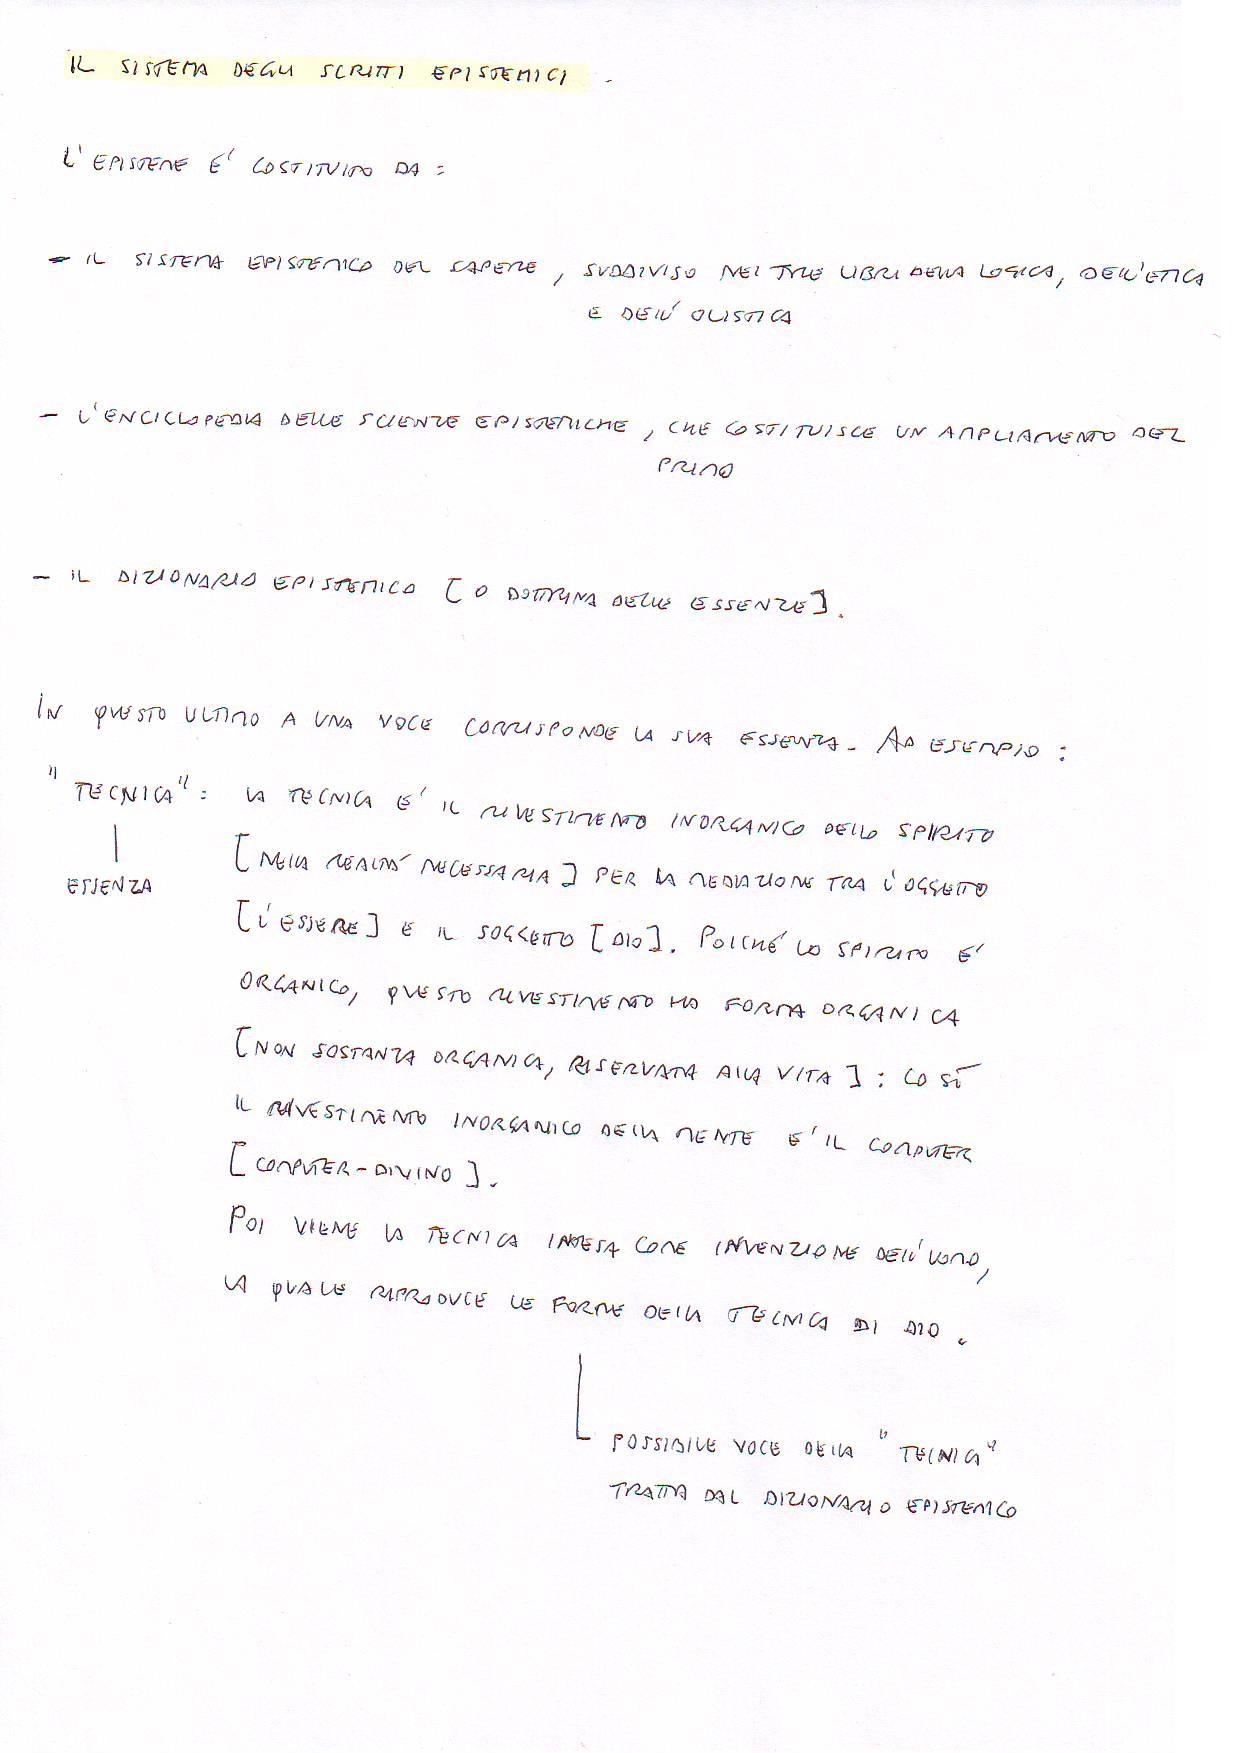 IL SISTEMA DEGLI SCRITTI EPISTEMICI
L'EPISTEME E' COSTITUITO DA:
- IL SISTEMA EPISTEMICO DEL SAPERE, SUDDIVISO NEI TRE LIBRI DELLA LOGICA, DELL'ETICA
E DELL'OLISTICA
- L'ENCICLOPEDIA DELLE SCIENZE EPISTEMICHE, CHE COSTITUISCE UN AMPLIAMENTO DEL
PRIMO
- IL DIZIONARIO EPISTEMICO [O DOTTRINA DELLE ESSENZE].
IN QUESTO ULTIMO A UNA VOCE CORRISPONDE LA SUA ESSENZA. AD ESEMPIO:
"TECNICA": LA TECNICA E' IL RIVESTIMENTO INORGANICO DELLO SPIRITO
[NELLA REALTA' NECESSARIA] PER LA MEDIAZIONE TRA L'OGGETTO
ESSENZA
[L'ESSERE] E IL SOGGETTO [DIO]. POICHÉ LO SPIRITO E'
ORGANICO, QUESTO RIVESTIMENTO HA FORMA ORGANICA
[NON SOSTANZA ORGANICA, RISERVATA ALLA VITA]: COSÌ
IL RIVESTIMENTO INORGANICO DELLA MENTE E' IL COMPUTER
[COMPUTER-DIVINO].
POI VIENE LA TECNICA INTESA COME INVENZIONE DELL'UOMO,
LA QUALE RIPRODUCE LE FORME DELLA TECNICA DI DIO.
POSSIBILE VOCE DELLA "TECNICA"
TRATTA DAL DIZIONARIO EPISTEMICO